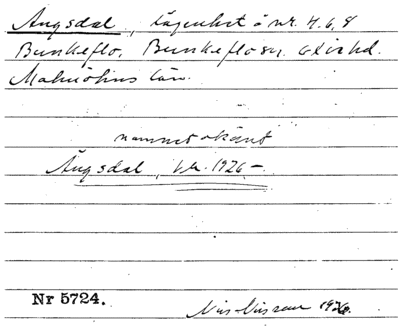 Ängsdal, lägenhet å nr. 4, 6, 8
Bunkeflo, Bunkeflo sn. Oxie hd.
Malmöhus län.
namnet okänt
Ängsdal, 1926 –
Nr 5724.
Nils Nilsson 1926.